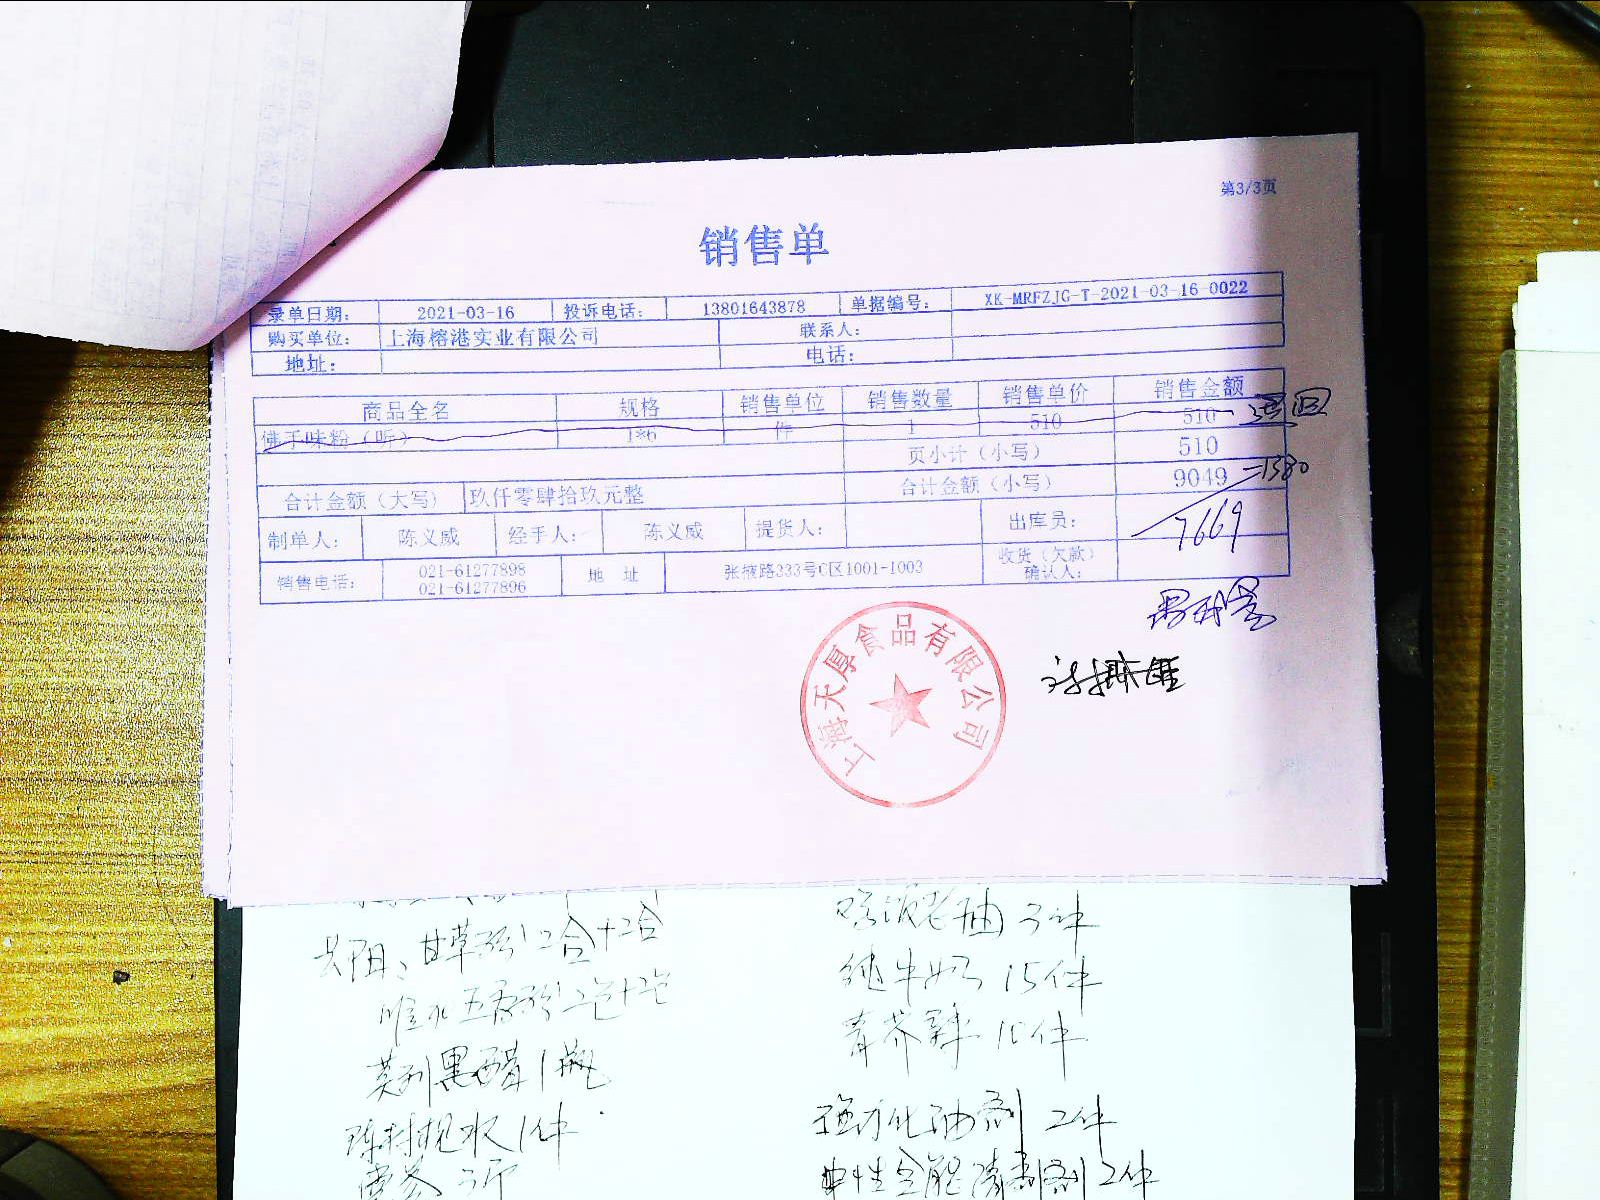 第3/3页
销售单
录单日期: 2021-03-16 投诉电话: 13801643878 单据编号: XK-MRFZJG-T-2021-03-16-0022
购买单位: 上海榕港实业有限公司 联系人:
地址: 电话:
商品全名 规格 销售单位 销售数量 销售单价 销售金额
佛手味粉（听） 1*6 件 1 510 510 退回
页小计（小写） 510
合计金额（大写） 玖仟零肆拾玖元整 合计金额（小写） 9049 -1380
7669
制单人: 陈义威 经手人: 陈义威 提货人: 出库员:
销售电话: 021-61277898 021-61277896 地 址 张掖路333号C区1001-1003 收货（欠款）确认人:
上海天厚食品有限公司
甘草粉 2合+2合
老抽 3件
纯牛奶 15件
青芥辣 10件
黑醋 1瓶
陈村枧水 1件
强力化油剂 2件
3斤
中性全能清洁剂 2件